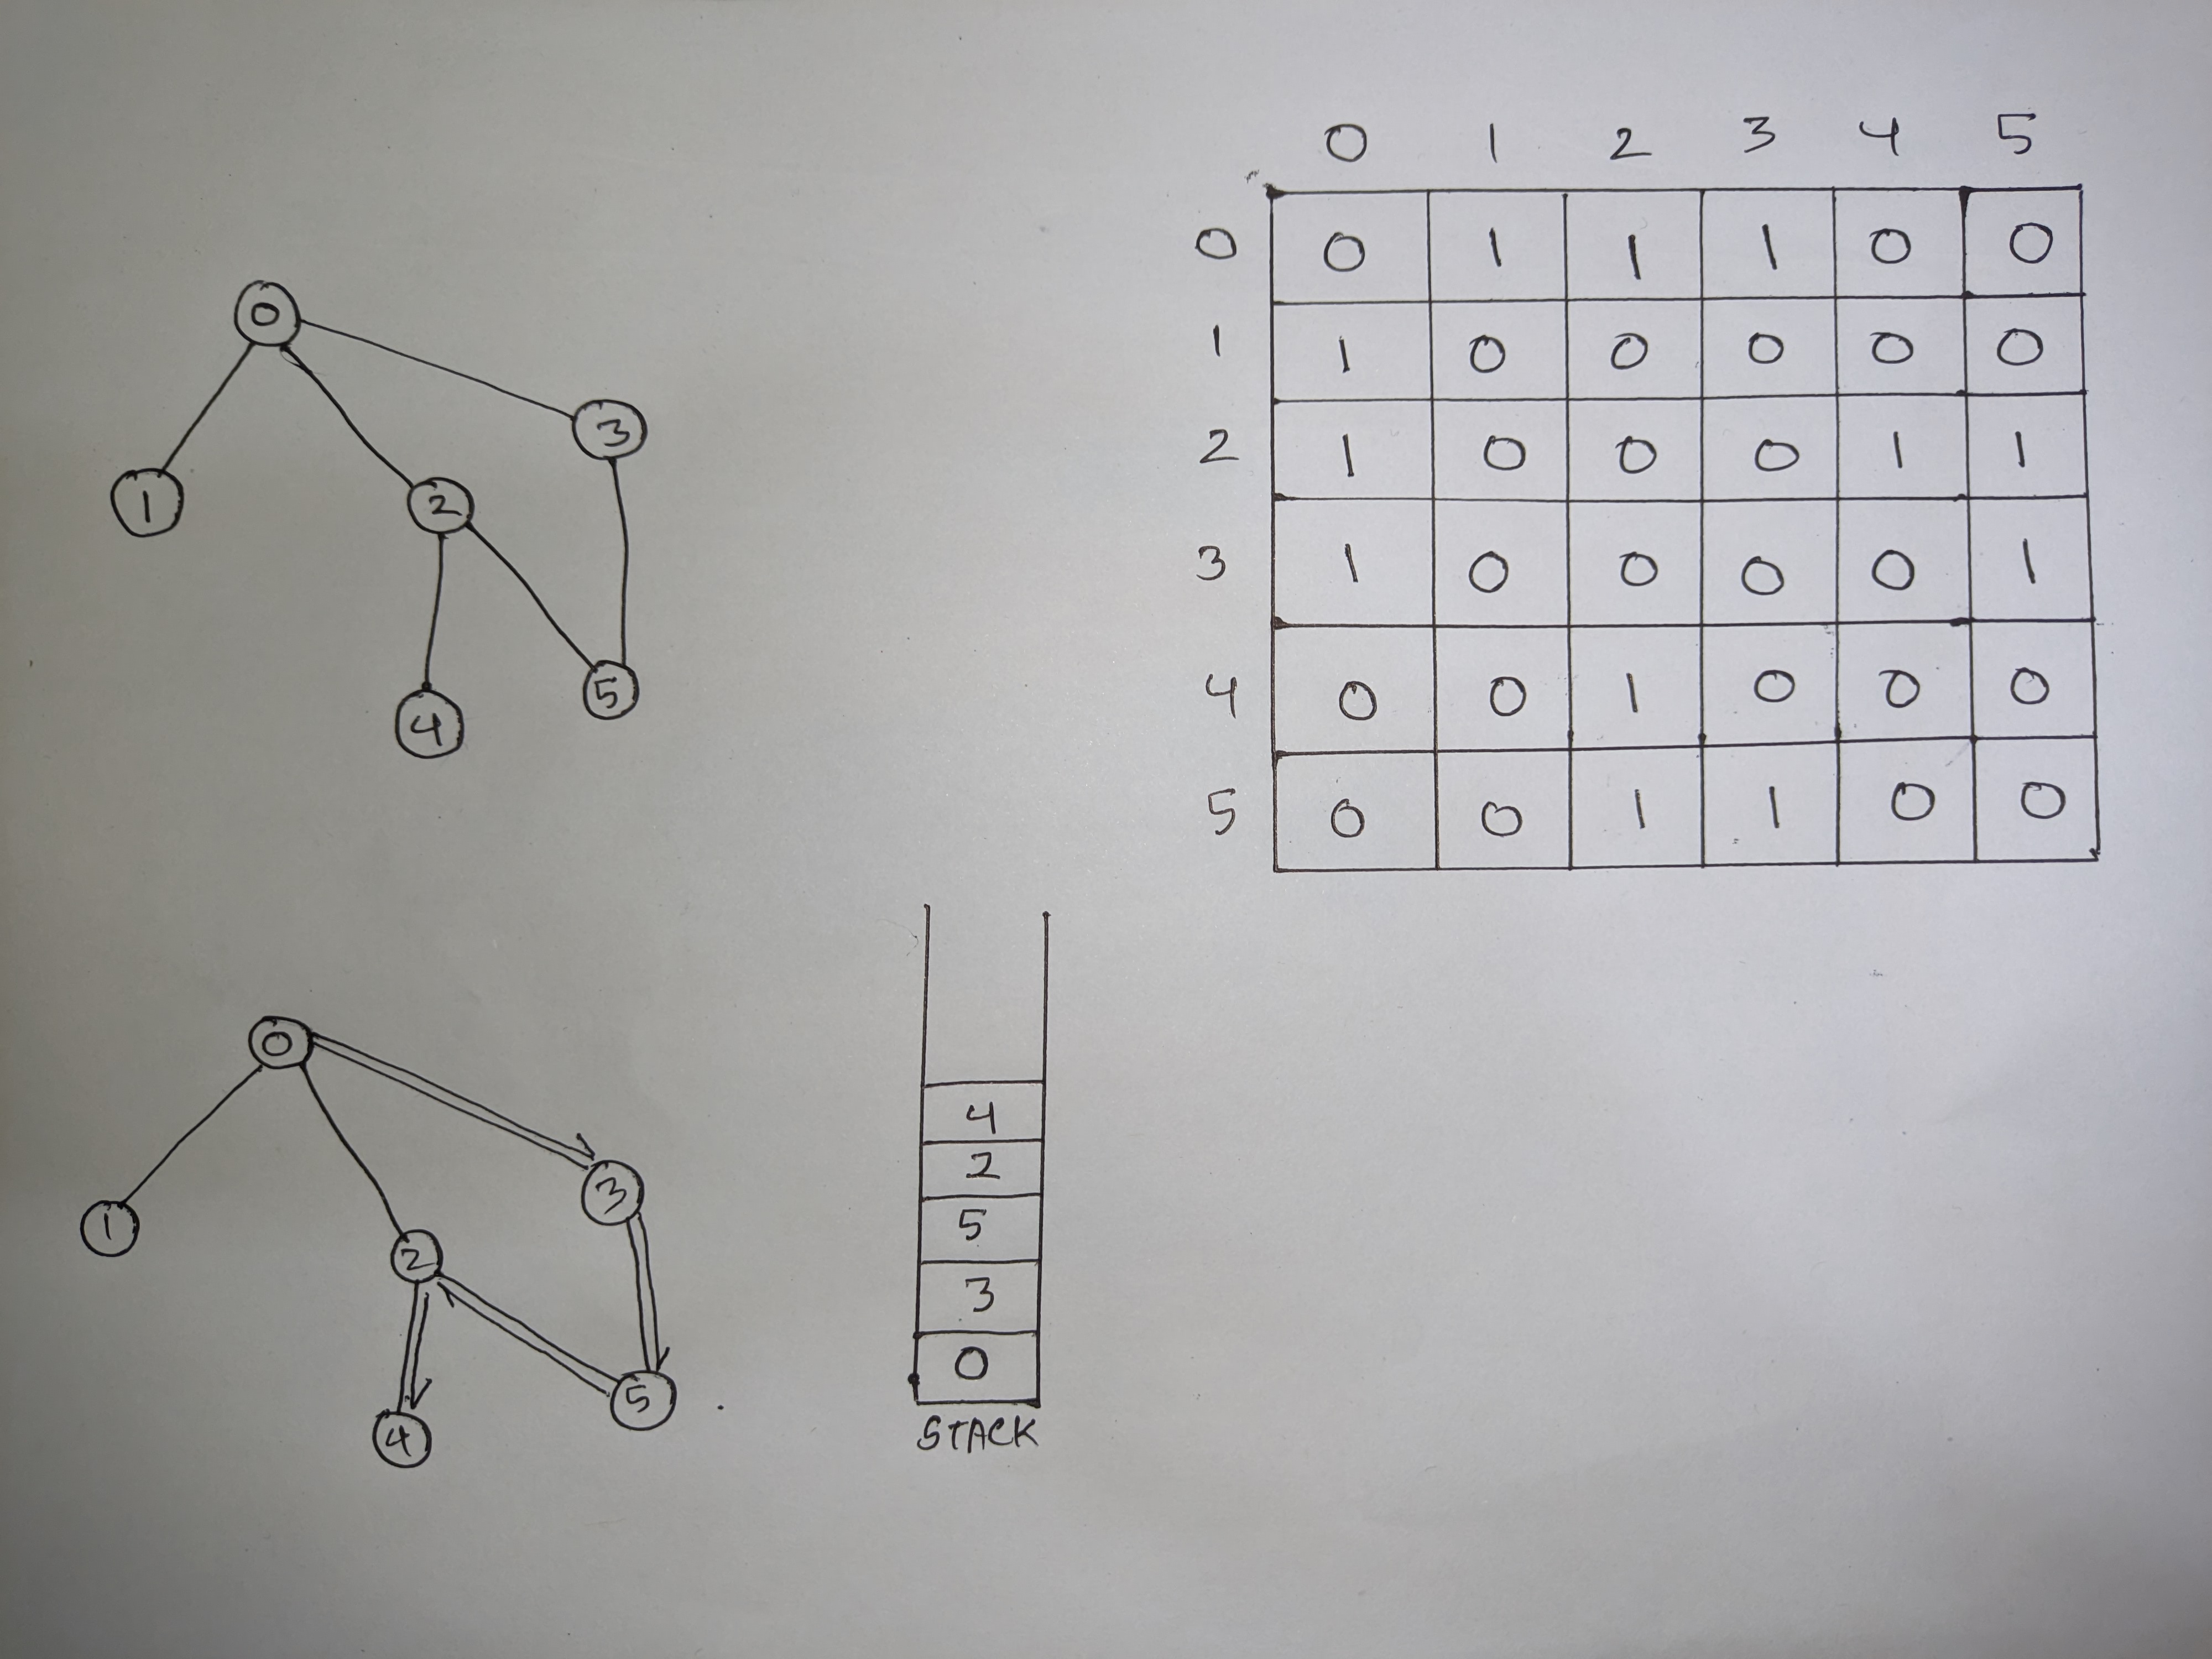 0
3
1
2
5
4
0 1 2 3 4 5
0 0 1 1 1 0 0
1 1 0 0 0 0 0
2 1 0 0 0 1 1
3 1 0 0 0 0 1
4 0 0 1 0 0 0
5 0 0 1 1 0 0
0
3
1
2
5
4
4
2
5
3
0
STACK